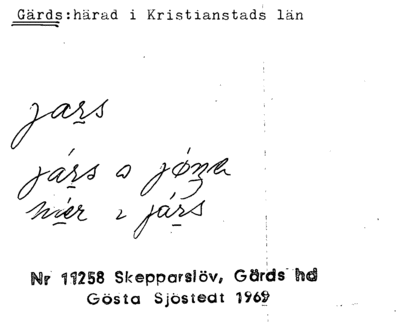 Gärds:härad i Kristianstads län
jaṟs
jáṟs
jáṟs
Nr 11258 Skepparslöv, Gärds hd
Gösta Sjöstedt 1969